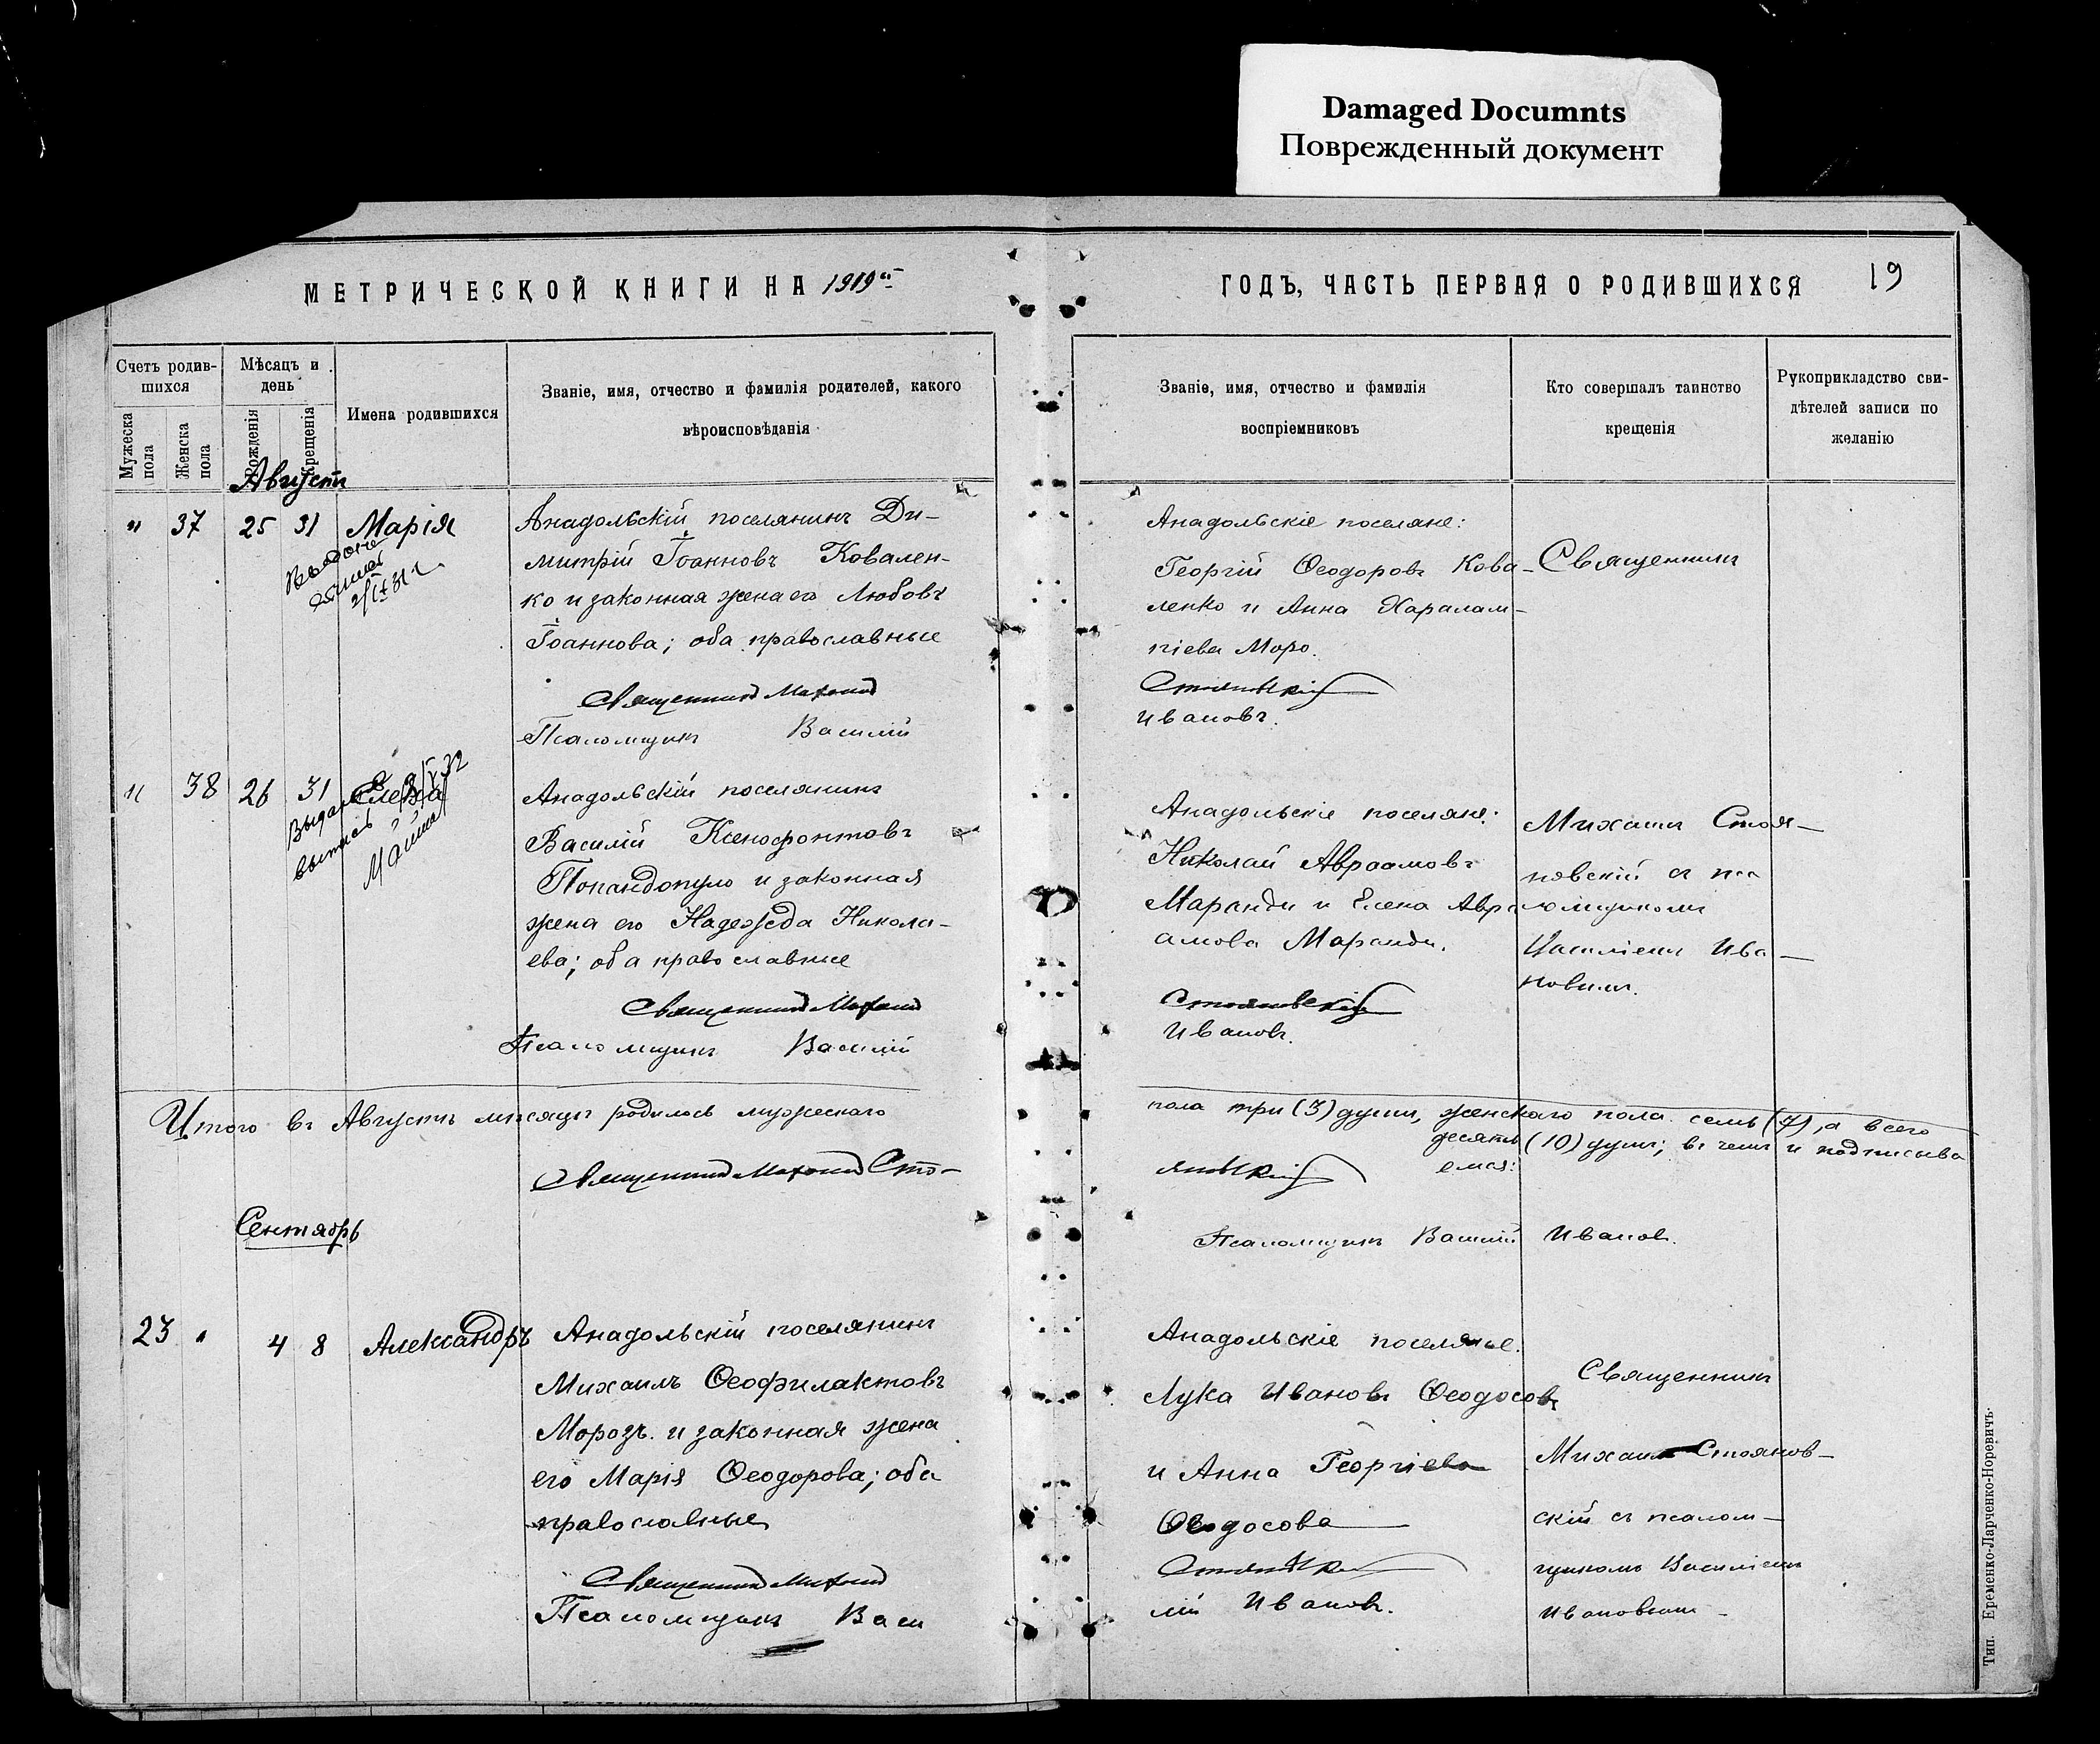 Damaged Documnts
Поврежденный документ
МЕТРИЧЕСКОЙ КНИГИ НА 1919й
ГОДЪ, ЧАСТЬ ПЕРВАЯ О РОДИВШИХСЯ
19
Счетъ родив-
шихся
Мужеска пола
Женска пола
Мѣсяцъ и
день
Рожденія
Крещенія
Имена родившихся
Званіе, имя, отчество и фамилія родителей, какого
вѣроисповѣданія
Званіе, имя, отчество и фамилія
воспріемниковъ
Кто совершалъ таинство
крещенія
Рукоприкладство сви-
дѣтелей записи по
желанію
Августъ
" 37 25 31 Марія
2/IX 31 г.
Анадольскій поселянинъ Ди-
митрій Іоанновъ Ковален-
ко и законная жена его Любовь
Іоаннова; оба православные
Священникъ Михаилъ
Псаломщикъ Василій
Анадольскіе поселяне:
Георгій Ѳеодоровъ Кова-
ленко и Анна Харалам-
піева Моро.
Стояновскій
Ивановъ.
Священникъ
" 38 26 31 Елена
Анадольскій поселянинъ
Василій Ксенофонтовъ
Попандопуло и законная
жена его Надежда Никола-
ева; оба православные
Священникъ Михаилъ
Псаломщикъ Василій
Анадольскіе поселяне:
Николай Авраамовъ
Маранди и Елена Авра
амова Маранди.
Стояновскій
Ивановъ.
Михаилъ Стоя-
новскій съ пса
ломщикомъ
Василіемъ Ива-
новымъ.
Итого въ Августѣ мѣсяцѣ родилось мужескаго
пола три (3) души, женскаго пола семь (7), а всего
десять (10) душъ; въ чемъ и подписыва
емся:
Священникъ Михаилъ Сто-
яновскій
Псаломщикъ Василій Ивановъ.
Сентябрь
23 " 4 8 Александръ
Анадольскій поселянинъ
Михаилъ Ѳеофилактовъ
Морозъ и законная жена
его Марія Ѳеодорова; оба
православные
Священникъ Михаилъ
Псаломщикъ Васи
Анадольскіе поселяне.
Лука Ивановъ Ѳеодосовъ
и Анна Георгіева
Ѳеодосова
Стояновскій
лій Ивановъ.
Священникъ
Михаилъ Стоянов-
скій съ псалом-
щикомъ Василіемъ
Ивановымъ
Тип. Еременко-Ларченко-Норевичъ.